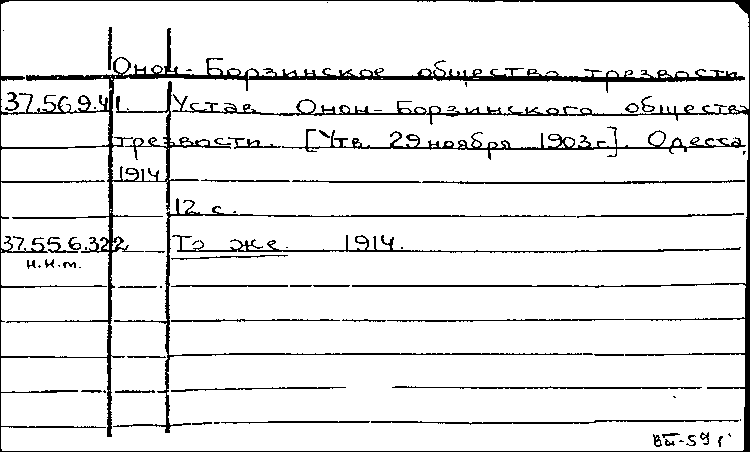 Онон-Борзинское общество трезвости
37.56.9.41. Устав Онон-Борзинского общества
трезвости. [Утв. 29 ноября 1903 г.]. Одесса,
1914
12 с.
37.55.6.322 То же. 1914.
н.н.т.